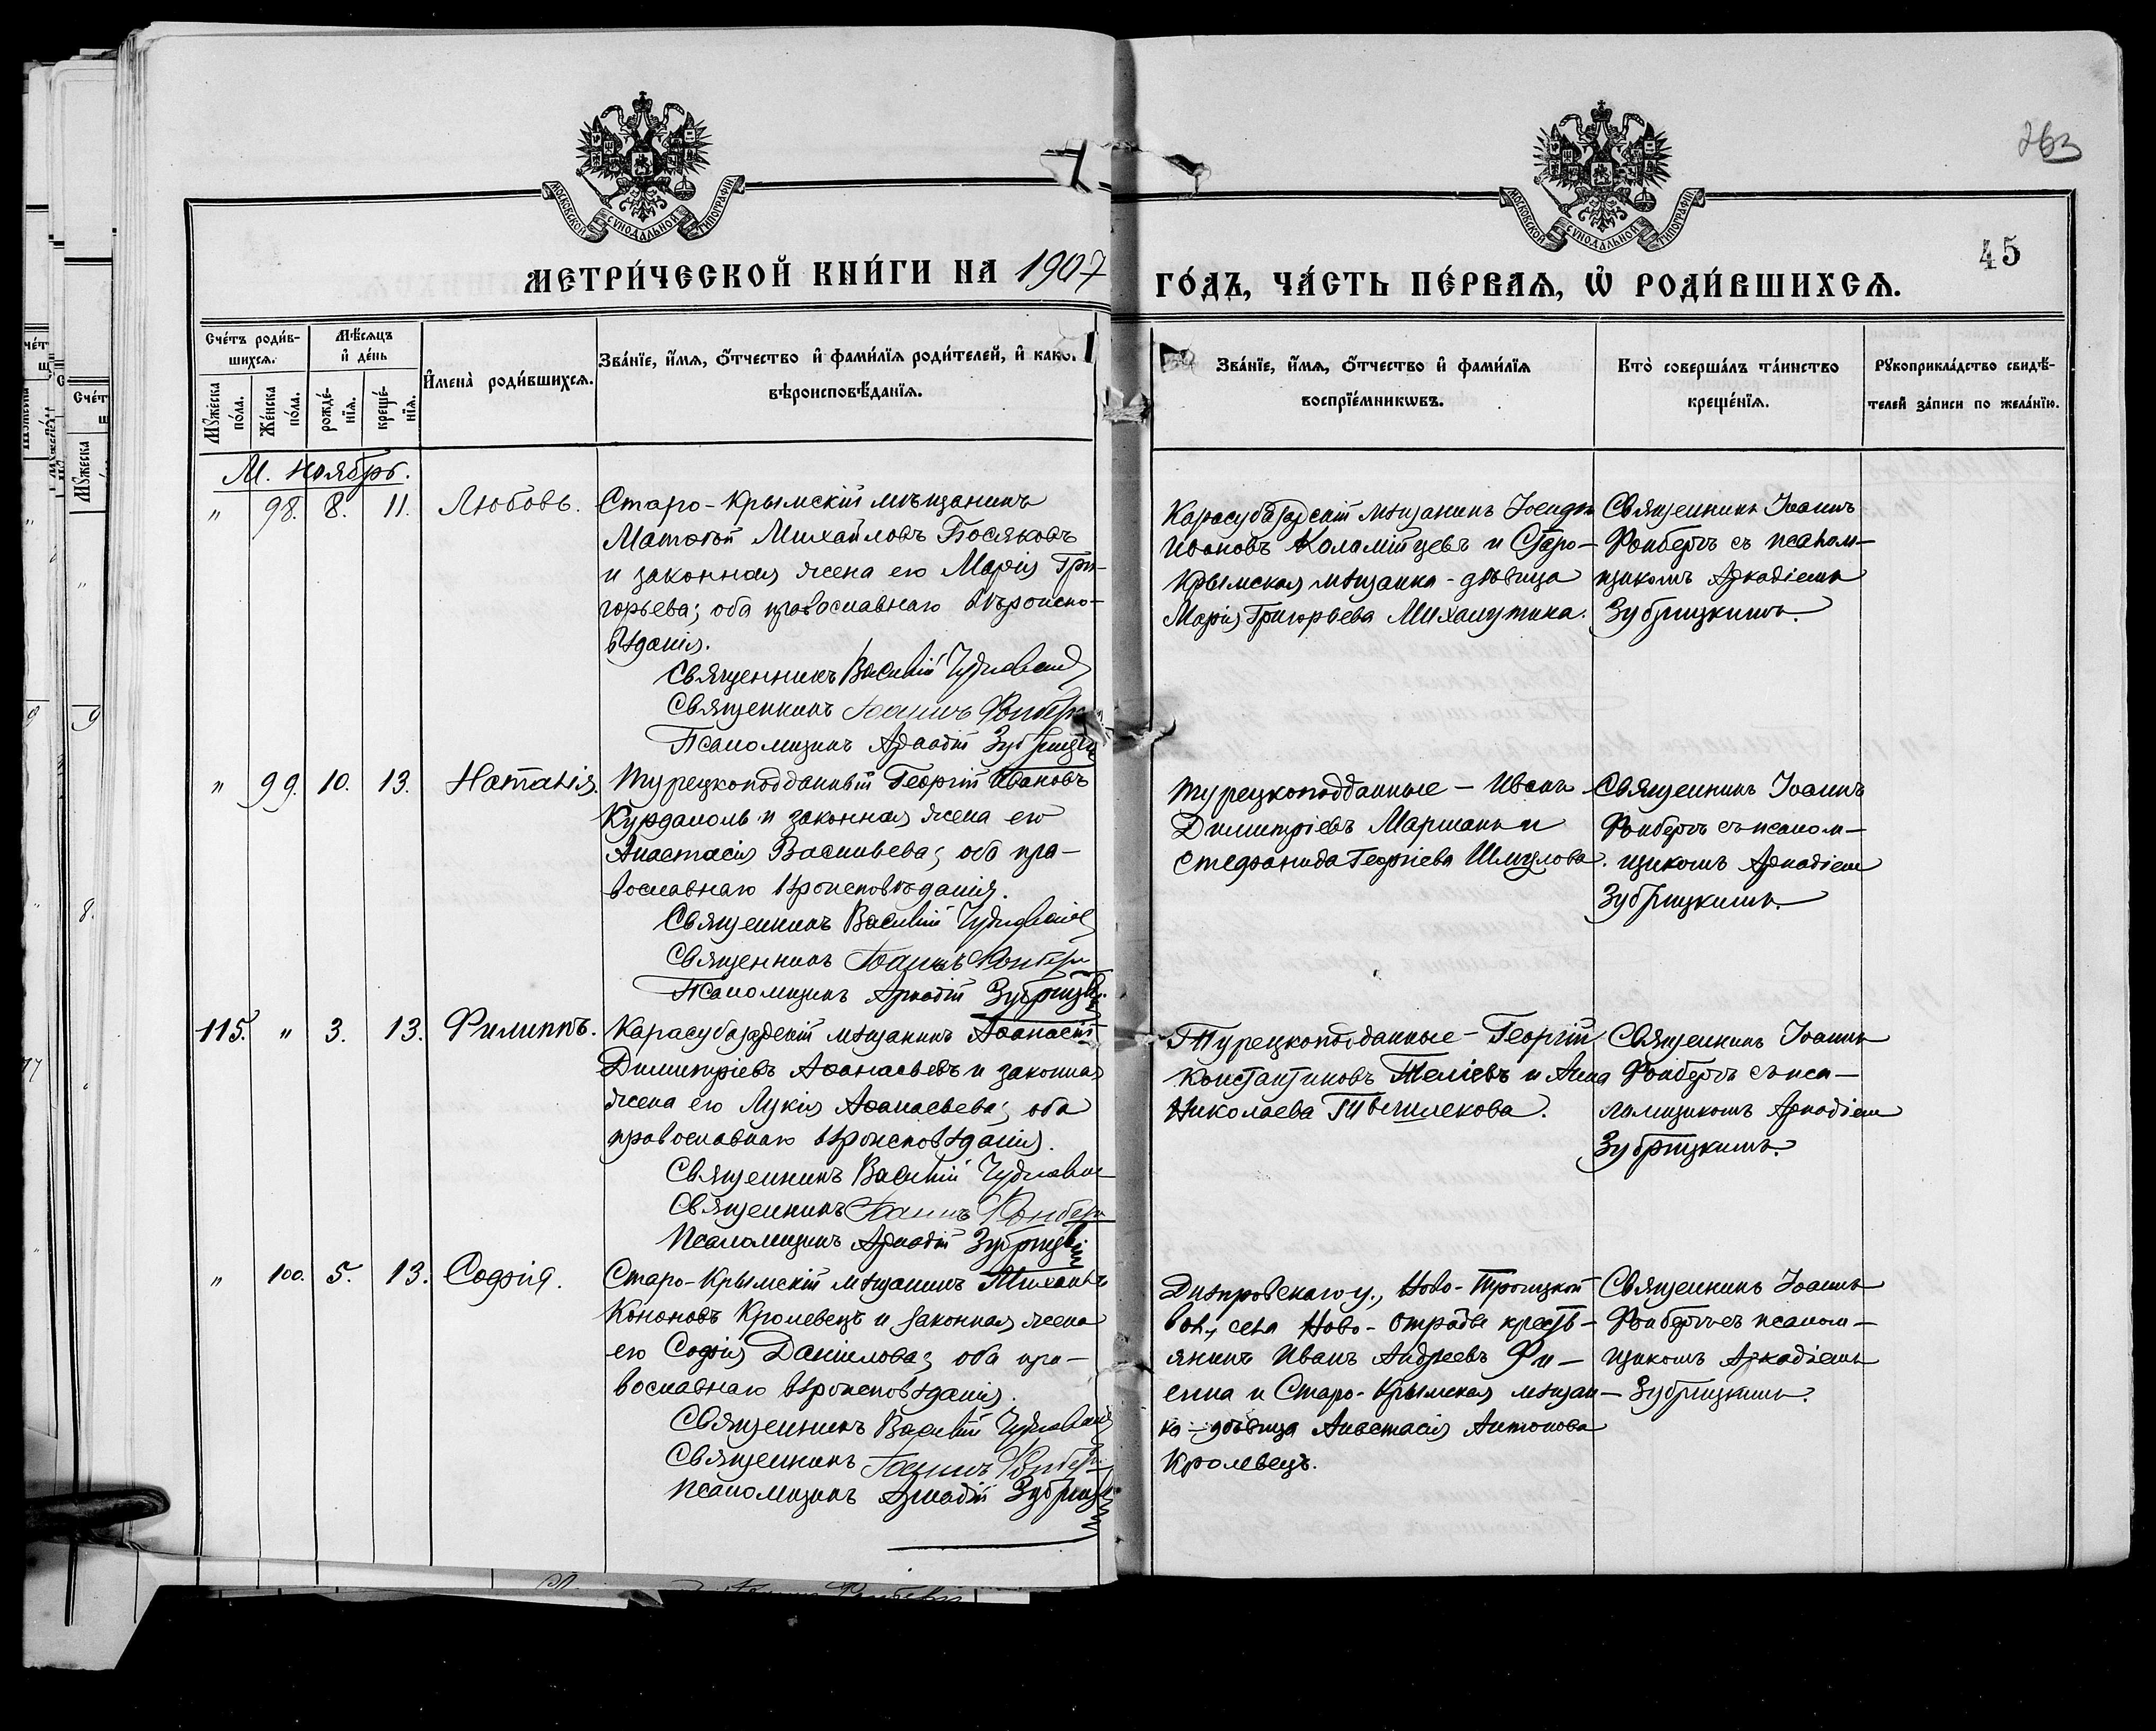 263
МОСКОВСКОЙ СѴНОДАЛЬНОЙ ТИПОГРАФІИ
МОСКОВСКОЙ СѴНОДАЛЬНОЙ ТИПОГРАФІИ
45
МЕТРИ́ЧЕСКОЙ КНИ́ГИ НА 1907
ГО́ДЪ, ЧА́СТЬ ПЕ́РВАѦ, Ѡ҆ РОДИ́ВШИХСѦ.
Сче́тъ роди́в-
шихсѧ.
Мѣ́сѧцъ
и҆ де́нь
Мꙋ́жеска
по́ла.
Же́нска
по́ла.
рожде́-
нїѧ.
креще́-
нїѧ.
И҆мена̀ роди́вшихсѧ.
Зва́нїе, и҆́мѧ, о҆́тчество и҆ фами́лїѧ роди́телей, и҆ како
вѣроисповѣ́данїѧ.
Зва́нїе, и҆́мѧ, о҆́тчество и҆ фами́лїѧ
воспрїе́мникѡвъ.
Кто̀ соверша́лъ та́инство
креще́нїѧ.
Рꙋкоприкла́дство свидѣ́-
телей за́писи по жела́нїю.
М. ноябрь.
" 98. 8. 11. Любовь.
Старо-Крымскій мѣщанинъ
Матѳей Михайловъ Босяковъ
и законная жена его Марія Гри-
горьева; оба православнаго вѣроиспо-
вѣданія.
Священникъ Василій
Священникъ Іоаннъ
Псаломщикъ Аркадій Зубрицкій
Карасубазарскій мѣщанинъ Іосифъ
Ивановъ Коломійцевъ и Старо-
Крымская мѣщанка - дѣвица
Марія Григорьева Михалутина.
Священникъ Іоаннъ
Фонберъ съ псалом-
щикомъ Аркадіемъ
Зубрицкимъ.
" 99. 10. 13. Наталія.
Турецкоподданный Георгій Ивановъ
Курдаполъ и законная жена его
Анастасія Васильева; оба пра-
вославнаго вѣроисповѣданія.
Священникъ Василій
Священникъ Іоаннъ
Псаломщикъ Аркадій Зубрицкій
Турецкоподданные - Иванъ
Димитріевъ и
Стефанида Георгіева
Священникъ Іоаннъ
Фонберъ съ псалом-
щикомъ Аркадіем
Зубрицкимъ.
115. " 3. 13. Филиппъ.
Карасубазарскій мѣщанинъ Аѳанасій
Димитріевъ Аѳанасьевъ и законная
жена его Лукія Аѳанасьева; оба
православнаго вѣроисповѣданія.
Священникъ Василій
Священникъ Іоаннъ
Псаломщикъ Аркадій Зубрицкій
Турецкоподданные - Георгій
Константиновъ Теліевъ и Анна
Николаева
Священникъ Іоаннъ
Фонберъ съ пса-
ломщикомъ Аркадіем
Зубрицкимъ.
" 100. 5. 13. Софія.
Старо-Крымскій мѣщанинъ Михаилъ
Кононовъ Кролевецъ и законная жена
его Софія Даніилова; оба пра-
вославнаго вѣроисповѣданія.
Священникъ Василій
Священникъ Іоаннъ
Псаломщикъ Аркадій Зубрицкій
Днѣпровскаго у., Ново-Троицкой
вол., села Ново-Отрады кресть-
янинъ Иванъ Андреевъ Фи-
енка и Старо-Крымская мѣщан-
ка - дѣвица Анастасія Антонова
Кролевецъ.
Священникъ Іоаннъ
Фонберъ съ псалом-
щикомъ Аркадіемъ
Зубрицкимъ.